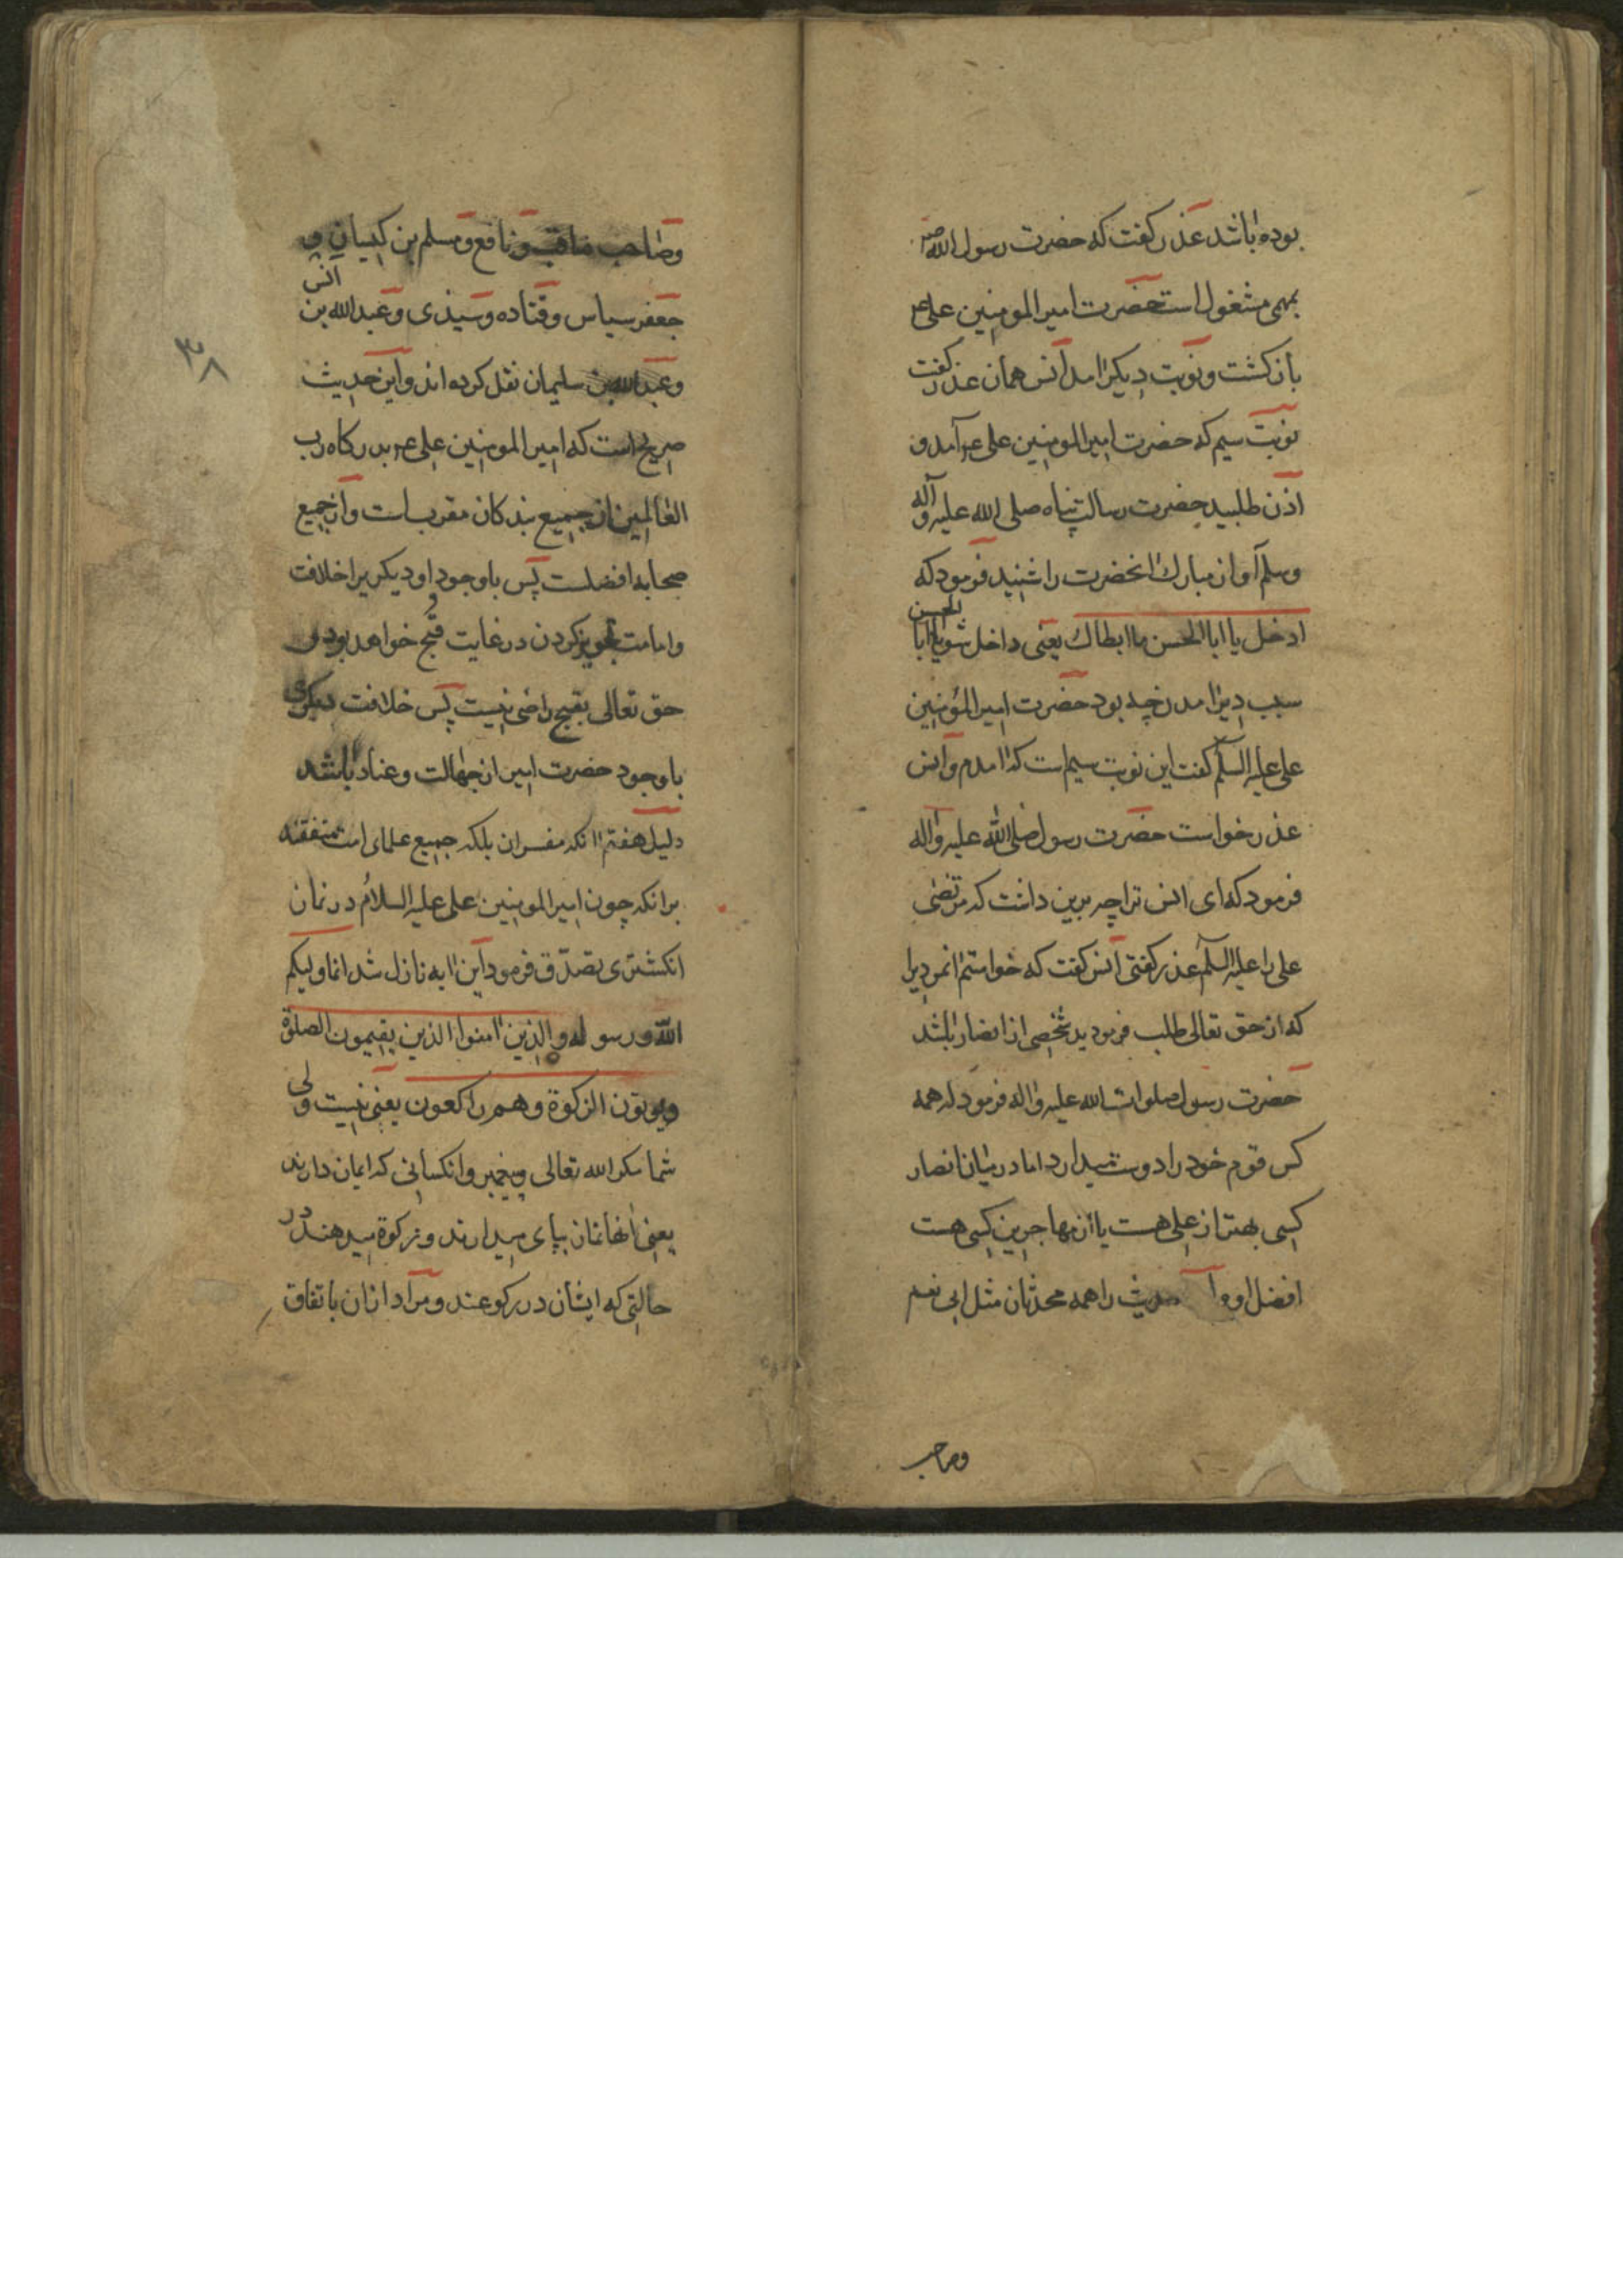 بوده باشد عذر کفت که حضرت رسول الله صم
بمهمی مشغول است حضرت امیر المومنین علی عم
بازکشت و نوبت دیکر امد انس همان عذر کفت
نوبت سیم که حضرت امیر المومنین علی عم آمد و
اذن طلبید حضرت رسالت پناه صلی الله علیه و آله
وسلم آواز مبارک انحضرت را شنید فرمود که
ادخل یا ابا الحسن ما ابطاک یعنی داخل شو یا ابا الحسن
سبب دیر امدن چه بود حضرت امیر المؤمنین
علی علیه السلم کفت این نوبت سیم است که امدم و انس
عذر خواست حضرت رسول صلی الله علیه و اله
فرمود که ای انس ترا چه برین داشت که مرتضی
علی را علیه السلم عذر کفتی انس کفت که خواستم
که از حق تعالی طلب فرمودید شخصی از انصار باشد
حضرت رسول صلوات الله علیه و اله فرمود که همه
کس قوم خود را دوست میدارد اما در میان انصار
کسی بهتر از علی هست یا از مهاجرین کسی هست
افضل از و حدیث را همه محدثان مثل ابی نعیم
وصاحب
۳۸
وصاحب مناقب و نافع و مسلم بن کیسان و
جعفر سیاس و قتاده و سیذی و عبد الله بن انس
وعبد الله بن سلیمان نقل کرده اند و این حدیث
صریح است که امیر المومنین علی عم بدرکاه رب
العالمین از جمیع بندکان مقرب است و از جمیع
صحابه افضلست پس با وجود او دیکریرا خلافت
و امامت تجویز کردن در غایت قبح خواهد بود و
حق تعالی بقبح راضی نیست پس خلافت دیکری
با وجود حضرت امیر از جهالت و عناد باشد
دلیل هفتم انکه مفسران بلکه جمیع علمای امت متفقند
برانکه چون امیر المومنین علی علیه السلام در نماز
انکشتری تصدق فرمود این ایه نازل شد انما ولیکم
الله و رسوله و الذین امنوا الذین یقیمون الصلوة
ویوتون الزکوة وهم راکعون یعنی نیست ولی
شما مکر الله تعالی و پیغمبر و انکسانی که ایمان دارند
یعنی انها نماز بپای میدارند و زکوة میدهند در
حالتی که ایشان در رکوعند و مراد ازان باتفاق